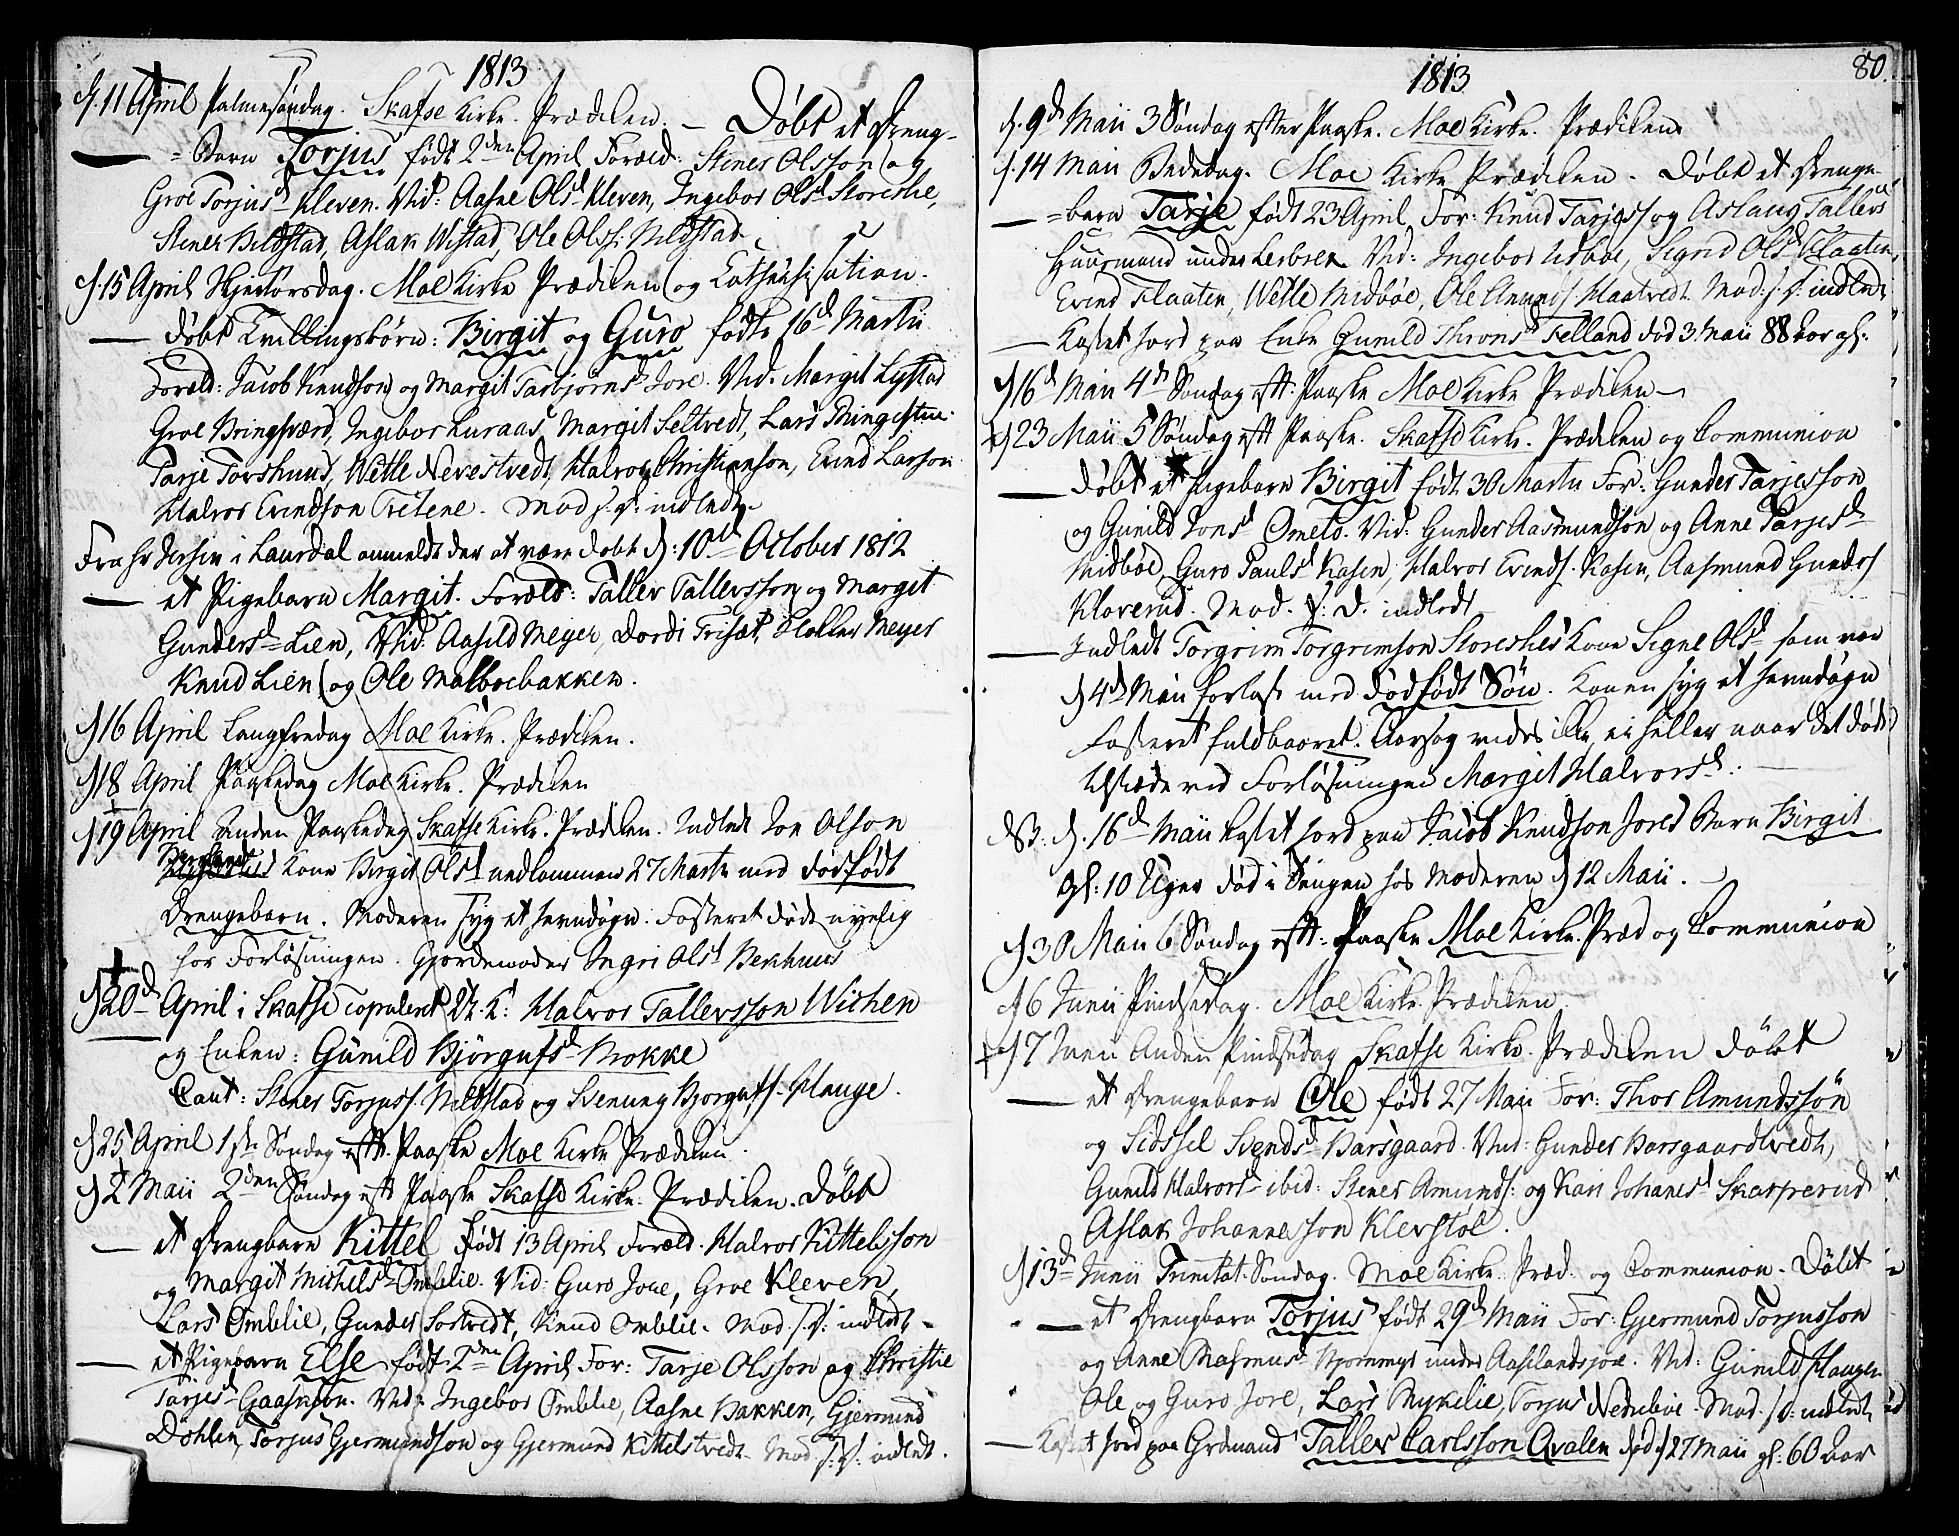 1813
d. 11 April Palmesøndag. Skafse Kirke. Prædiken. — Døbt et Drenge-
= Barn Torjus født 2den April Foræld: Stener Olsson og
Groe Torjusd Kleven. Vid: Aasne Olsd Kleven, Ingebor Olsd Storeshe,
Stener Nildstad, Aslak Wistad, Ole Olss: Nildstad
d. 15 April Skjertorsdag. Moe Kirke Prædiken og Cathechisation.
— Døbt Tvillingsbørn: Birgit og Guro fødte 16d Martii
Foræld: Jacob Knudson og Margit Tarbjørnsd Jore. Vid. Margit Lystad
Groe Bringsværd, Ingebor Luraas, Margit Seltvedt, Lars Ringestue
Tarje Torshuus, Wetle Nerestvedt, Halvor Christenson, Evind Larson
Halvor Evindson Tretene. Mod. s. D: indledt.
Fra Hr in i Laurdal anmeldt der at være døbt d: 10d October 1812
— et Pigebarn Margit. Foræld: Taller Tallersson og Margit
Gundersd Lien, Vid. Aasild Meyer, Dordi Trisæt, Holler Meyer
Knud Lien og Ole Malboebakken.
d 16 April Langfredag Moe Kirke. Prædiken.
d 18 April Paaskedag Moe Kirke. Prædiken
d 19 April Anden Paaskedag Skafse Kirke. Prædiken. Indledt Jon Olson
Kone Birgit Olsd nedkommen 27 Martii med dødfødt
Drengebarn. Moderen syg et Døgn. Fosteret døde nyelig
før Forløsningen. Gjordemoder Ingri Olsd Bekhuus
d 20d April i Skafse copuleret U. K: Halvor Tallersson Wichen
og Enken: Gunild Bjørgufsd Mokke
Caut: Stener Torjuss. Nildstad og Stenung Bjorgufs. Hauge.
d 25 April 1ste Søndag eft. Paaske Moe Kirke Prædiken.
d 2 Maii 2den Søndag eft Paaske Skafse Kirke. Prædiken. Døbt
— et Drengbarn Kittel født 13 April Foræld. Halvor Kittelsson
og Margit Michelsd Omblie. Vid: Guro Joue, Groe Kleven,
Lars Omblie, Gunder Sortvedt, Knud Omblie. Mod. s. D: indledt.
— et Pigebarn Else født 2den April For: Tarje Olsson og Christie
Tarjesd Gaaskjøn. Vid: Ingebor Omblie, Aasne Bakken, Gjermund
Döhlen, Torjus Gjermundson og Gjermund Kittelstvedt. Mod. s. D. indledt.
1813
80
d. 9d Maii 3 Søndag efter Paaske. Moe Kirke. Prædiken
d. 14 Maii Bededag. Moe Kirke Prædiken. Døbt et Drenge
— =barn Tarje født 23 April, For: Knud Tarjess og Aslaug Tallersd
Huusmand under Lerbrek Vid: Ingebor Midboe, Sigrid Olsd Flaaten,
Evind Flaaten, Wetle Midböe, Ole Amunds. Haatvedt. Mod: s. D: indledt
— Kastet Jord paa Enke Gunild Thronsd Felland død 3 Maii 88 Aar gl.
d 16d Maii 4d Søndag eft. Paaske Moe Kirke Prædiken —
d 23 Maii 5 Søndag eft Paaske. Skafse Kirke. Prædiken og Communion
— Døbt et Pigebarn Birgit født 30 Martii For: Gunder Tarjesson
og Gunild Jonsd Ometo. Vid: Gunder Aasmundson og Anne Tarjesd
Midböe, Guro Paulsd Kasen, Halvor Evinds. Kasen, Aasmund Gunders
Kloverud. Mod. s: D. indledt
— Indledt Torgrim Torgrimson Storeshes Kone Signe Olsd som var
d 4d Maii forløst med Dødfødt Søn. Konen syg et Døgn
Fosteret fuldbaaret. Aarsag vides ikke, ei heller naar det døde
Tilstæde ved Forløsningen Margit Halvorsd. —
NB: d. 16d Maii kastet Jord paa Jacob Knudson Jores Barn Birgit
gl: 10 Uger død i Sengen hos Moderen d 12 Maii.
d 30 Maii 6 Søndag eft: Paaske Moe Kirke. Præd og Communion
d 6 Junii Pindsedag. Moe Kirke Prædiken
d 7 Junii Anden Pindsedag Skafse Kirke. Prædiken Døbt
— et Drengebarn Ole født 27 Maii For: Thor Amundssön
og Sidssel Svendsd Harsgaard. Vid: Gunder Harsgaardtvedt,
Gunild Halvorsd ibid: Stener Amunds: og Kari Johanesd Skarperud
Aslak Johannesson Klevstöl.
d 13d Junii Trinitat. Søndag. Moe Kirke Præd. og Communion. Døbt
— et Drengbarn Torjus født 29d Maii For: Gjermund Torjusson
og Anne Rasmusd Bjornmyr under Aaslandsjore. Vid: Gunild Haugen
Ole og Guro Jore, Lars Mykelie, Torjus Nedreböe. Mod. s. D: indledt
— Kastet Jord paa Grdmand Taller Carlsson Qvalen død d 27 Maii gl: 60 Aar